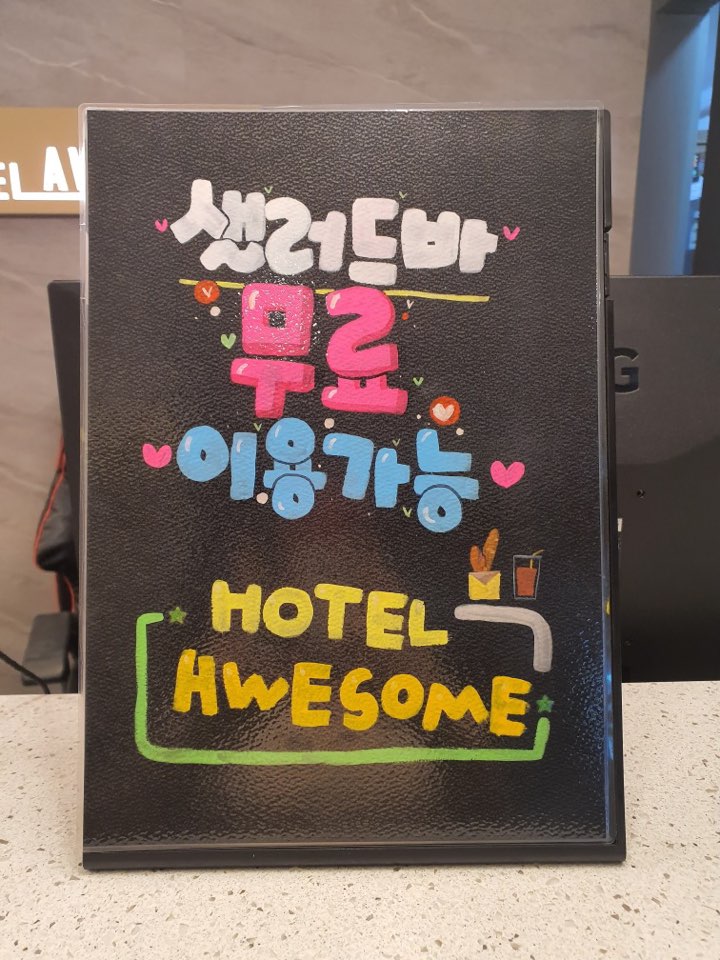 EL AW
샐러드바
무료
이용가능
G
HOTEL
AWESOME